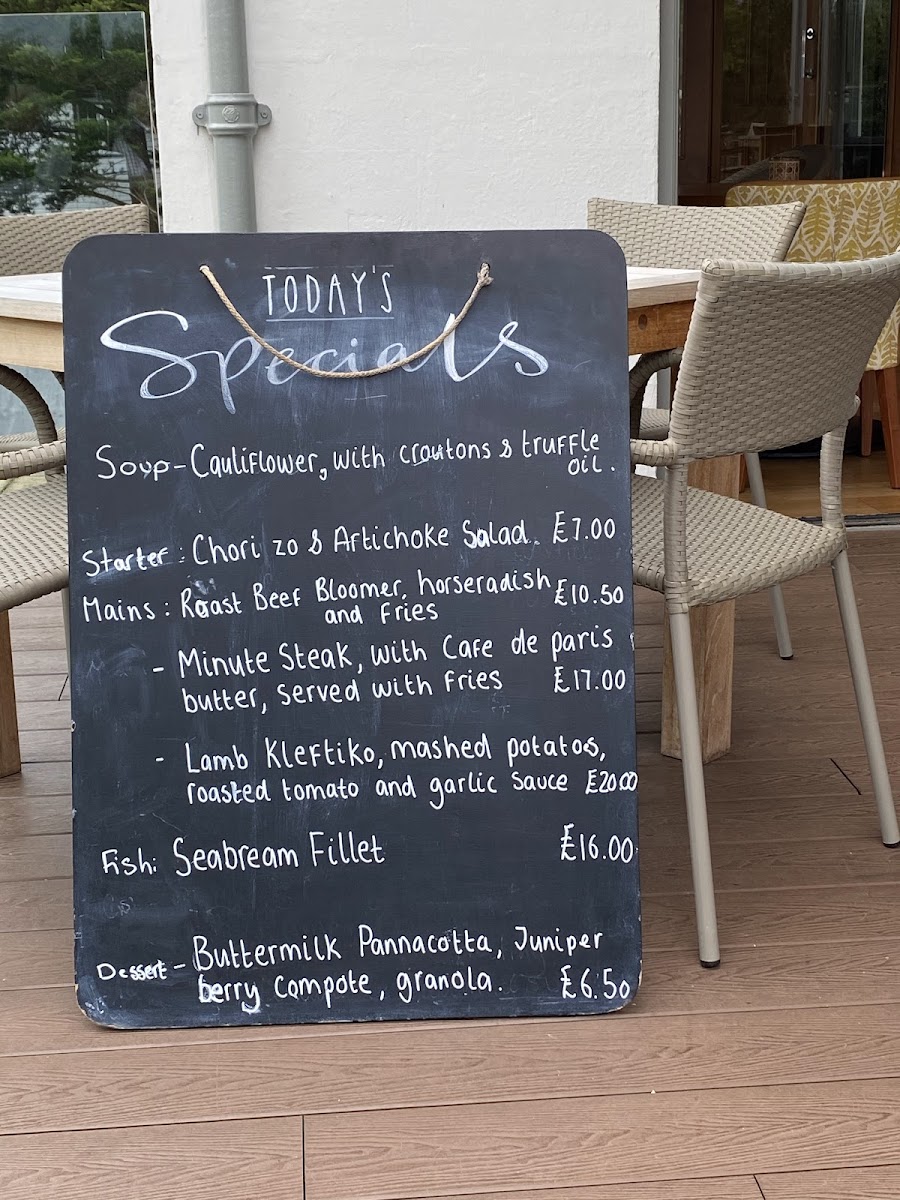 TODAY'S
Specials
Soup - Cauliflower, with croutons & truffle
oil.
Starter: Chorizo & Artichoke Salad. £7.00
Mains: Roast Beef Bloomer, horseradish £10.50
and fries
- Minute Steak, with Cafe de paris
butter, served with fries £17.00
- Lamb Kleftiko, mashed potatos,
roasted tomato and garlic sauce £20.00
Fish: Seabream Fillet £16.00
Dessert - Buttermilk Pannacotta, Juniper
berry compote, granola. £6.50